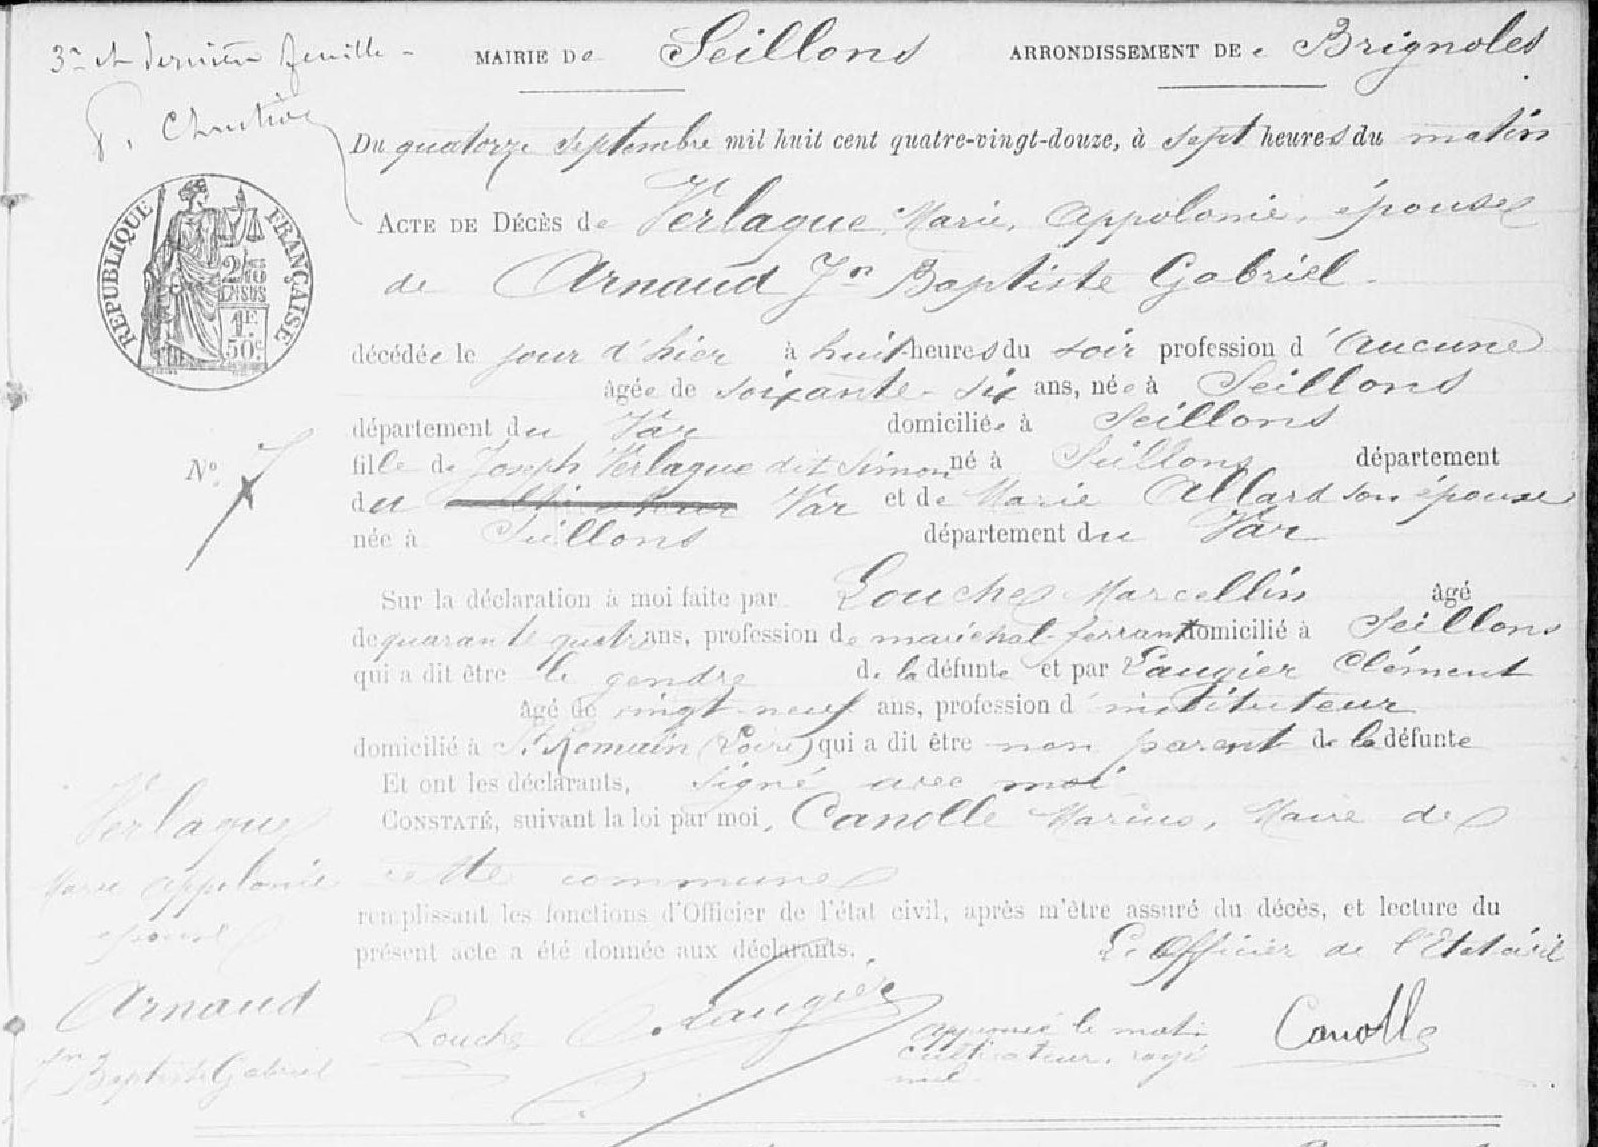 3e et dernière feuille -
MAIRIE De Seillons ARRONDISSEMENT DE Brignoles
Du quatorze septembre mil huit cent quatre-vingt-douze, à sept heures du matin
ACTE DE DÉCÈS de Verlaque Marie, Appolonie, épouse
de Arnaud Jn Baptiste Gabriel.
RÉPUBLIQUE FRANÇAISE
2/10 EN SUS
1F. 50C.
décédée le jour d'hier à huit heures du soir profession d'Aucune
âgée de soixante-six ans, née à Seillons
département du Var domiciliée à Seillons
No. 7
fille de Joseph Verlaque dit Simon né à Seillons département
du Var et de Marie Allard son épouse
née à Seillons département du Var
Sur la déclaration à moi faite par Louche Marcellin âgé
de quarante quatre ans, profession de maréchal-ferrant domicilié à Seillons
qui a dit être le gendre de la défunte et par Laugier Clément
âgé de vingt-neuf ans, profession d'instituteur
domicilié à St Romain (Loire) qui a dit être non parent de la défunte
Et ont les déclarants, signé avec moi
CONSTATÉ, suivant la loi par moi, Canolle Marius, Maire de
cette commune
remplissant les fonctions d'Officier de l'état civil, après m'être assuré du décès, et lecture du
présent acte a été donnée aux déclarants.
L'Officier de l'Etat civil
Verlaque
Marie Appolonie
épouse
Arnaud
Jn Baptiste Gabriel
Louche Laugier Canolle
approuvé le mot
cultivateur, rayé
nul.